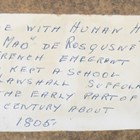 E WITH HUMAN H
"MAD" DE ROSQUSNE
RENCH EMERGANT
KEPT A SCHOOL
LAWSHALL SUFFOLK
THE EARLY PART OF
CENTURY ABOUT
1806-